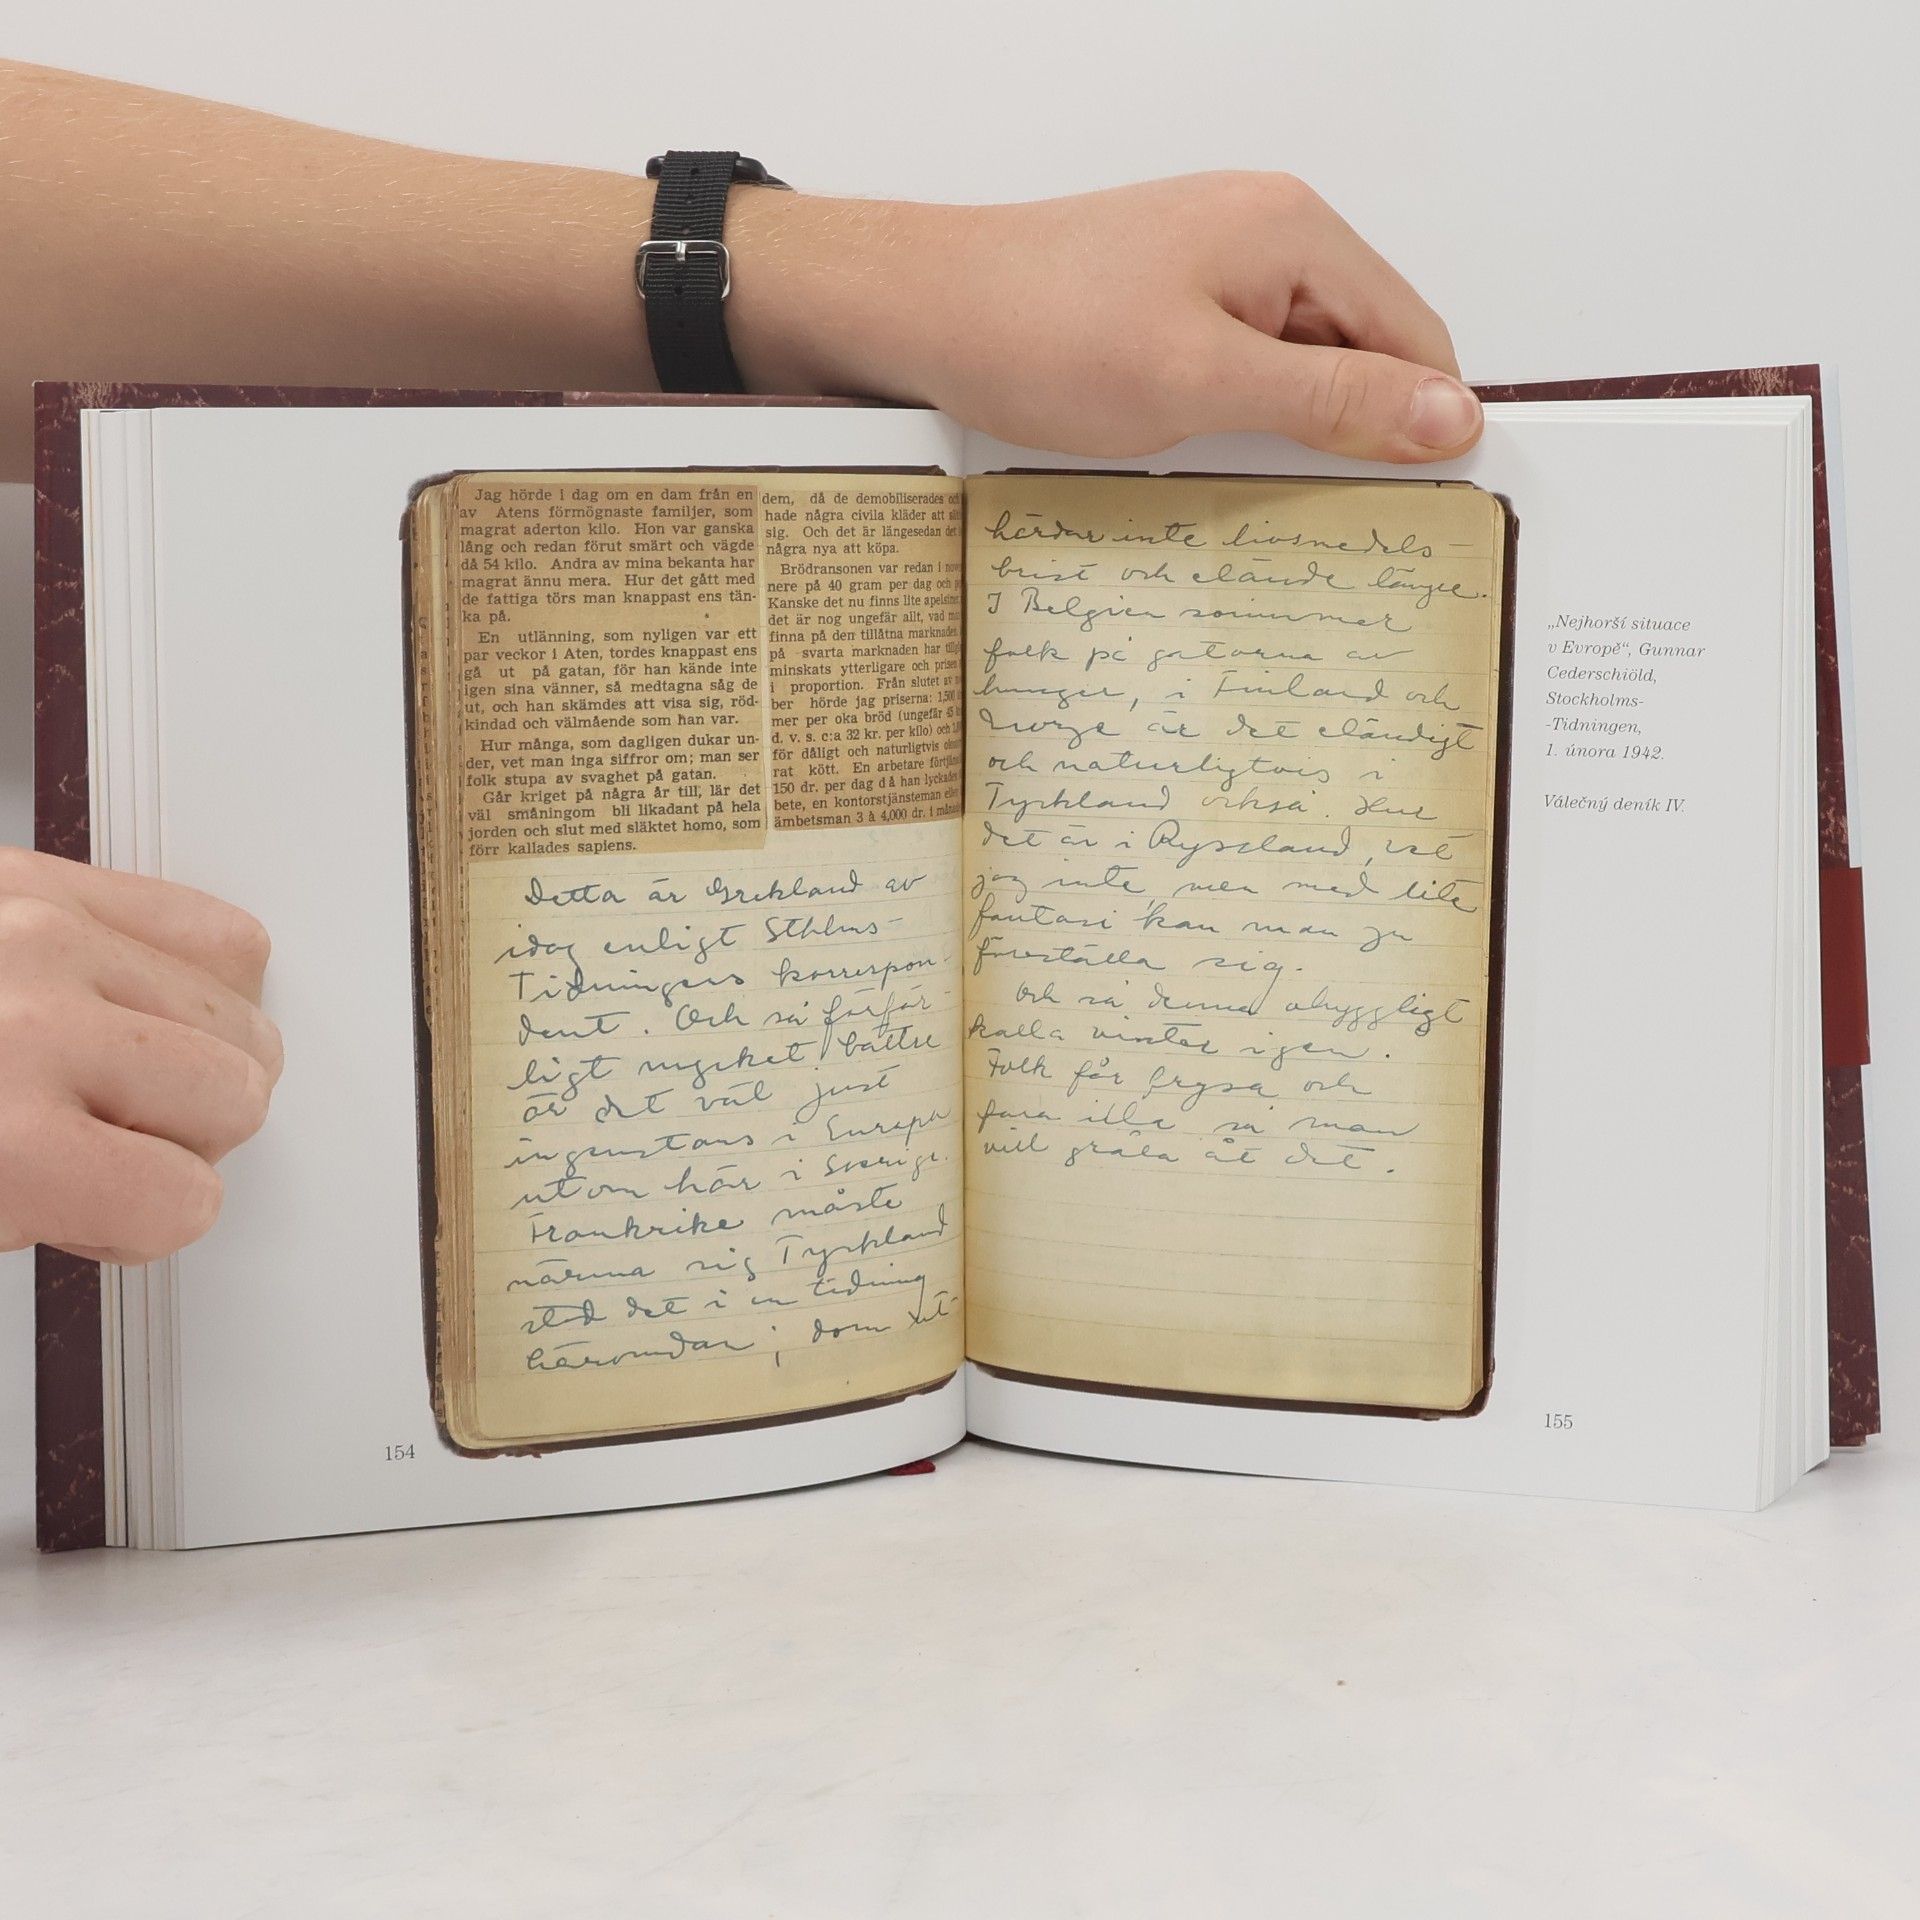 Jag hörde i dag om en dam från en
av Atens förmögnaste familjer, som
magrat aderton kilo. Hon var ganska
lång och redan förut smärt och vägde
då 54 kilo. Andra av mina bekanta har
magrat ännu mera. Hur det gått med
de fattiga törs man knappast ens tän-
ka på.
En utlänning, som nyligen var ett
par veckor i Aten, tordes knappast ens
gå ut på gatan, för han kände inte
igen sina vänner, så medtagna såg de
ut, och han skämdes att visa sig, röd-
kindad och välmående som han var.
Hur många, som dagligen dukar un-
der, vet man inga siffror om; man ser
folk stupa av svaghet på gatan.
Går kriget på några år till, lär det
väl småningom bli likadant på hela
jorden och slut med släktet homo, som
förr kallades sapiens.
dem, då de demobiliserades
hade några civila kläder att
sig. Och det är längesedan det
några nya att köpa.
Brödransonen var redan i
nere på 40 gram per dag och
Kanske det nu finns lite
det är nog ungefär allt, vad
finna på den tillåtna marknaden.
på svarta marknaden har
minskats ytterligare och
i proportion. Från slutet av
ber hörde jag priserna: 1,500
mer per oka bröd (ungefär
d. v. s. c:a 32 kr. per kilo) och
för dåligt och naturligtvis
rat kött. En arbetare
150 dr. per dag då han lyckades
bete, en kontorstjänsteman
ämbetsman 3 à 4,000 dr. i
Detta är Grekland av
idag enligt Sthlms-
Tidningens korrespon-
dent. Och så förfär-
ligt mycket bättre
är det väl just
ingenstans i Europa
utom här i Sverige.
Frankrike måste
närma sig Tyskland
stod det i en tidning
häromdan; dom ut-
härdar inte livsmedels-
brist och elände längre.
I Belgien svimmar
folk på gatorna av
hunger, i Finland och
Norge är det eländigt
och naturligtvis i
Tyskland också. Hur
det är i Ryssland, vet
jag inte, men med lite
fantasi kan man ju
föreställa sig.
Och så denna ohyggligt
kalla vinter igen.
Folk får frysa och
fara illa så man
vill gråta åt det.
„Nejhorší situace
v Evropě“, Gunnar
Cederschiöld,
Stockholms-
-Tidningen,
1. února 1942.
Válečný deník IV.
154
155